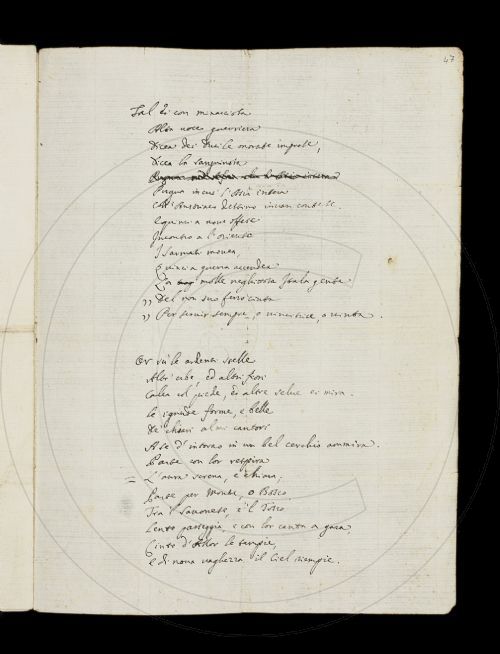 47
Tal di con minacciosa
Alta voce guerriera
Dicea dei Duci le onorate imprese,
Dicea la sanguinosa
Pugna in cui l'Asia intera
E quinci a nove offese
Incontro a l'oriente
I Sarmati movea,
E quinci a guerra accendea
La molle neghittosa Itala gente
„ Del non suo ferro cinta
„ Per servir sempre, o vincitrice, o vinta.
Or su le ardenti stelle
Altri cibe, ed altri fiori
Calca col piede, ed altre selve ei mira.
Le ignude forme, e belle
De' chiari almi cantori
A se d'intorno in un bel cerchio ammira.
Parte con lor respira
= L'aura serena, e chiara;
Parte per Monte, o Bosco,
Tra 'l Savonese, e 'l Tosco
Lento passeggia, e con lor canta a gara,
Cinto d'Allor le tempie,
E di nova vaghezza il Ciel riempie.